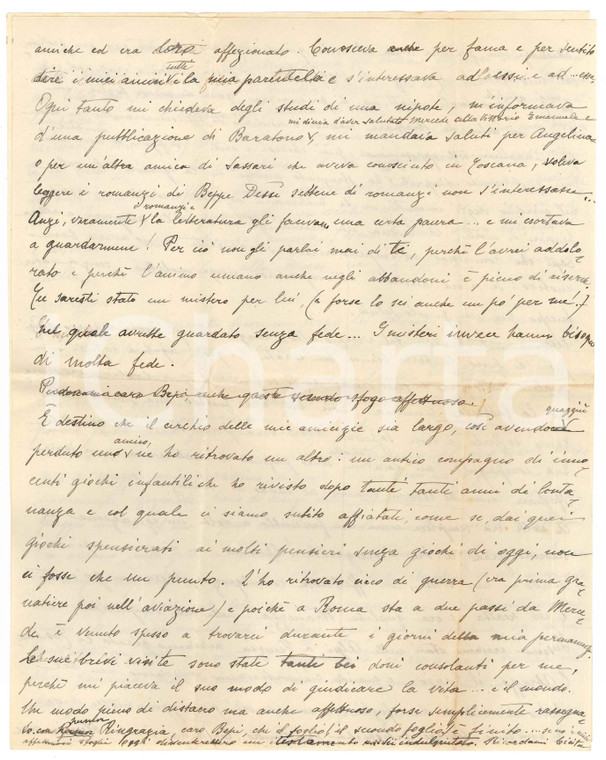 amiche ed era loro affezionato. Conosceva anche per fama e per sentito
dire i miei amici tutti e la mia parentela e s'interessava ad essi e ad
Ogni tanto mi chiedeva degli studi di una nipote, m'informava
mi diceva d'aver salutato Mercede alla Vittorio Emanuele e
d'una pubblicazione di Baratono, mi mandava saluti per Angelina
o per un'altra amica di Sassari che aveva conosciuto in Toscana, voleva
leggere i romanzi di Beppe Dessì sebbene di romanzi non s'interessasse...
i romanzi e
Anzi, veramente la letteratura gli facevan una certa paura... e mi esortava
a guardarmene! Per ciò non gli parlai mai di te, perchè l'avrei addolo-
rato e perchè l'animo umano anche negli abbandoni è pieno di riserve.
Tu saresti stato un mistero per lui (e forse lo sei anche un po' per me!)
nel quale avrebbe guardato senza fede... I misteri invece hanno bisogno
di molta fede.
Perdonami caro Bepi, anche questo secondo sfogo affettuoso.
quaggiù
È destino che il cerchio delle mie amicizie sia largo, così avendone
amico,
perduto uno ne ho ritrovato un altro: un antico compagno di inno-
centi giochi infantili che ho rivisto dopo tanti tanti anni di lonta-
nanza e col quale ci siamo subito affiatati come se, dai quei
giochi spensierati ai molti pensieri senza giochi di oggi, non
ci fosse che un punto. L'ho ritrovato cieco di guerra (era prima gra-
natiere poi nell'aviazione) e poichè a Roma sta a due passi da Merce-
de è venuto spesso a trovarci durante i giorni della mia permanenza.
Le sue brevi visite sono state tanti bei doni consolanti per me,
perchè mi piaceva il suo modo di giudicare la vita... e il mondo.
Un modo pieno di distacco ma anche affettuoso, forse semplicemente rassegna-
to. Ringrazia, caro Bepi, che il foglio (il secondo foglio) è finito...
affettuosi sfoghi oggi Ricordami